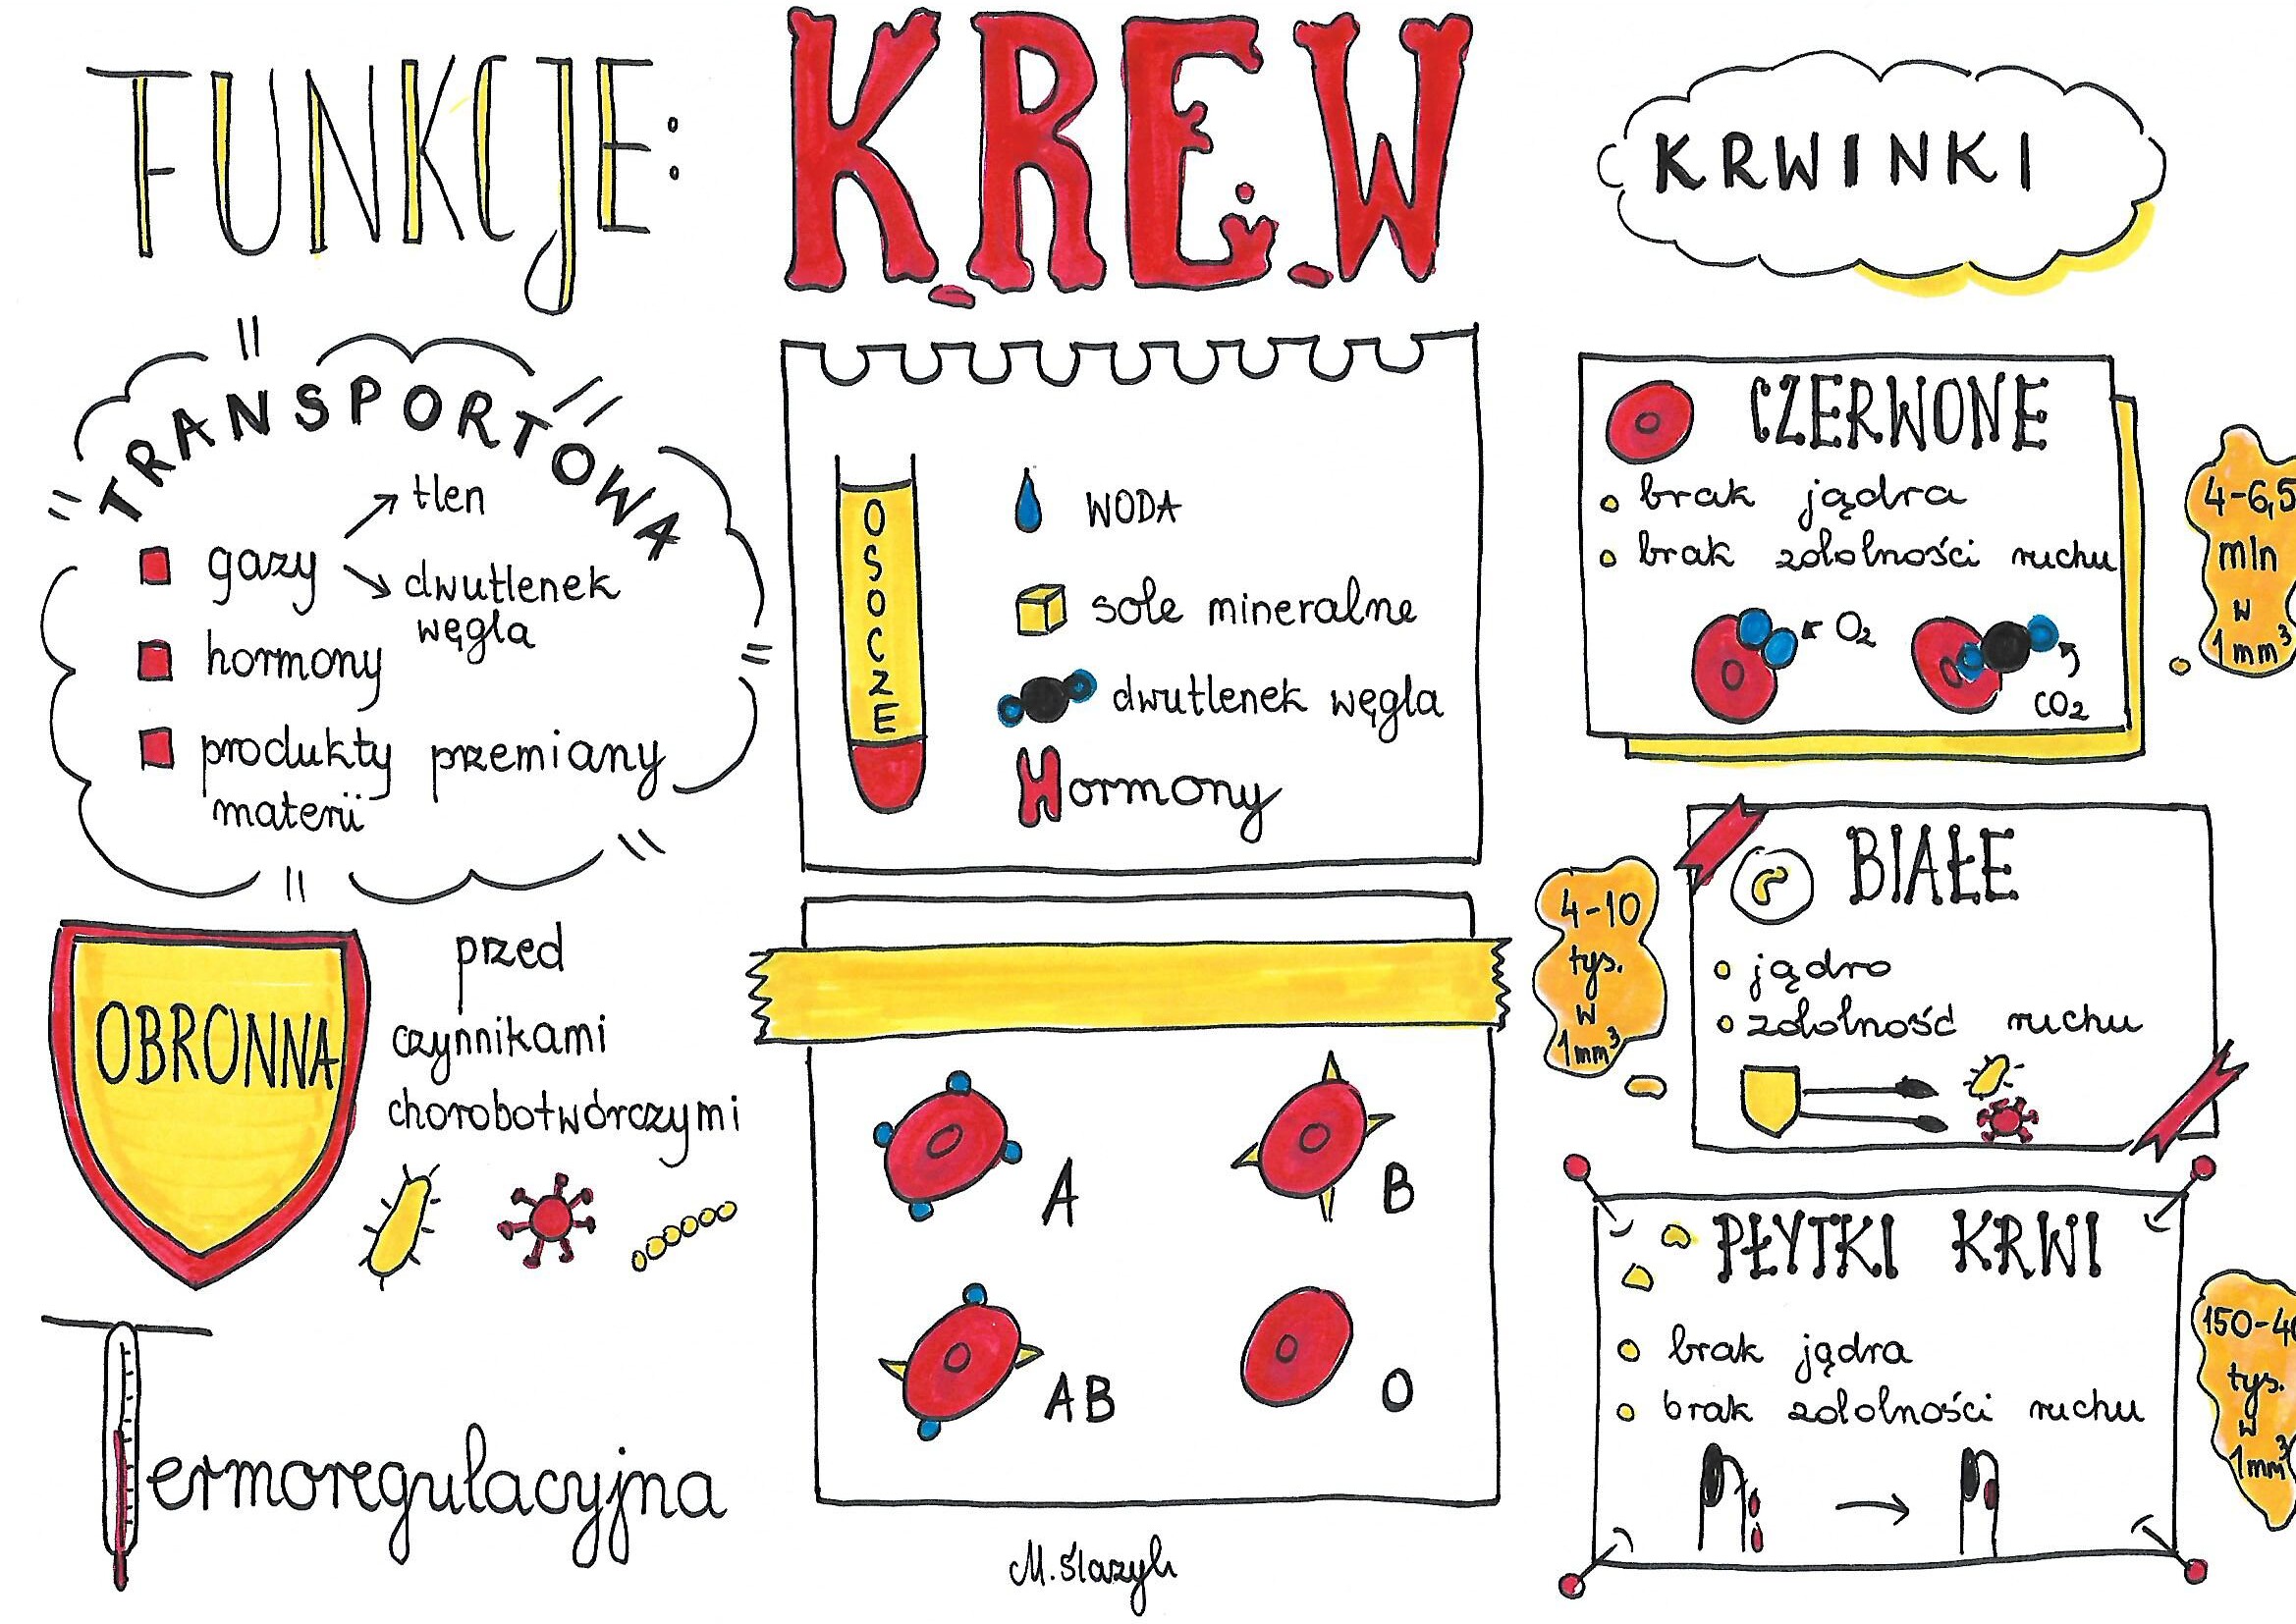 FUNKCJE:
TRANSPORTOWA
gazy
tlen
dwutlenek
węgla
hormony
produkty przemiany
materii
OBRONNA
przed
czynnikami
chorobotwórczymi
Termoregulacyjna
KREW
OSOCZE
WODA
sole mineralne
dwutlenek węgla
Hormony
A
B
AB
O
KRWINKI
CZERWONE
brak jądra
brak zdolności ruchu
O2
CO2
4-6,5
mln
w
1mm³
BIAŁE
jądro
zdolność ruchu
4-10
tys.
w
1mm³
PŁYTKI KRWI
brak jądra
brak zdolności ruchu
tys.
w
1mm³